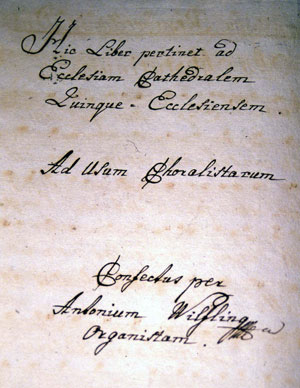 Hic Liber pertinet ad
Ecclesiam Cathedralem
Quinque-Ecclesiensem.
Ad Usum Choralistarum
Confectus per
Antonium Wilfling
Organistam.